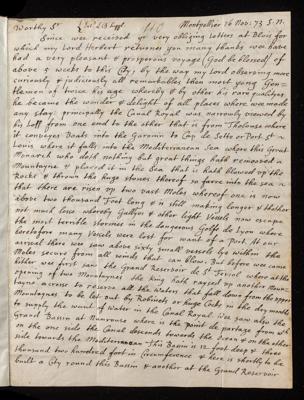 Worthy Sr Montpellier 16 Nov: 73 S.N.
Since wee received yr very obliging letters at Blois for
which my Lord Herbert returnes you many thanks wee have
had a very pleasant & prosperous voyage (God be blessed) of
above 5 weeks to this City, by the way my Lord observing more
curiously & judiciously all remarkables then most young Gen=
tlemen of twice his age whereby & by other his rare qualityes
he became the wonder & delight of all places where wee made
any stay. principally the Canal Royal was narrowly viewed by
his Lopp from one end to the other that is from Tholouse where
it conveyes Boats into the Garonne to Cap de Sette or Port St
Louis where it falls into the Mediterranean Sea where this Great
Monarch who doth nothing but great things hath removed a
Mountayne & placed it in the Sea that is hath blowed up the
Rocks & thrown the huge stones thereof so farre into the sea
that there are risen up two vast Moles whereof one is now
above two thousand Foot long & is still making longer & thother
not much lesse whereby Gallyes & other light Vessels now escape
the most terrible stormes in the dangerous Golfe de Lyon where
heretofore many Vessels were lost for want of a Port. At our
arrival there wee saw above sixty small vessels lye within the
Moles secure from all winds that can blow. But before wee came
hither wee first saw the Grand Reservoir de St Feriol where at the
opening of two Mountaynes the King hath raysed up another Moun=
tayne acrosse to reserve all the Waters that fall down from the upper
Mountaynes to be let out by Robinets or huge Cocks in the dry months
to supply the want of Water in the Canal Royal. Wee saw also the
Grand Bassin at Naurouse where is the point de partage from wch
on the one side the Canal descends towards the Ocean & on the other
side towards the Mediterranean This Bassin is 12 foot deep & three
thousand two hundred foot in Circumference & here is shortly to be
built a City round this Bassin & another at the Grand Reservoir